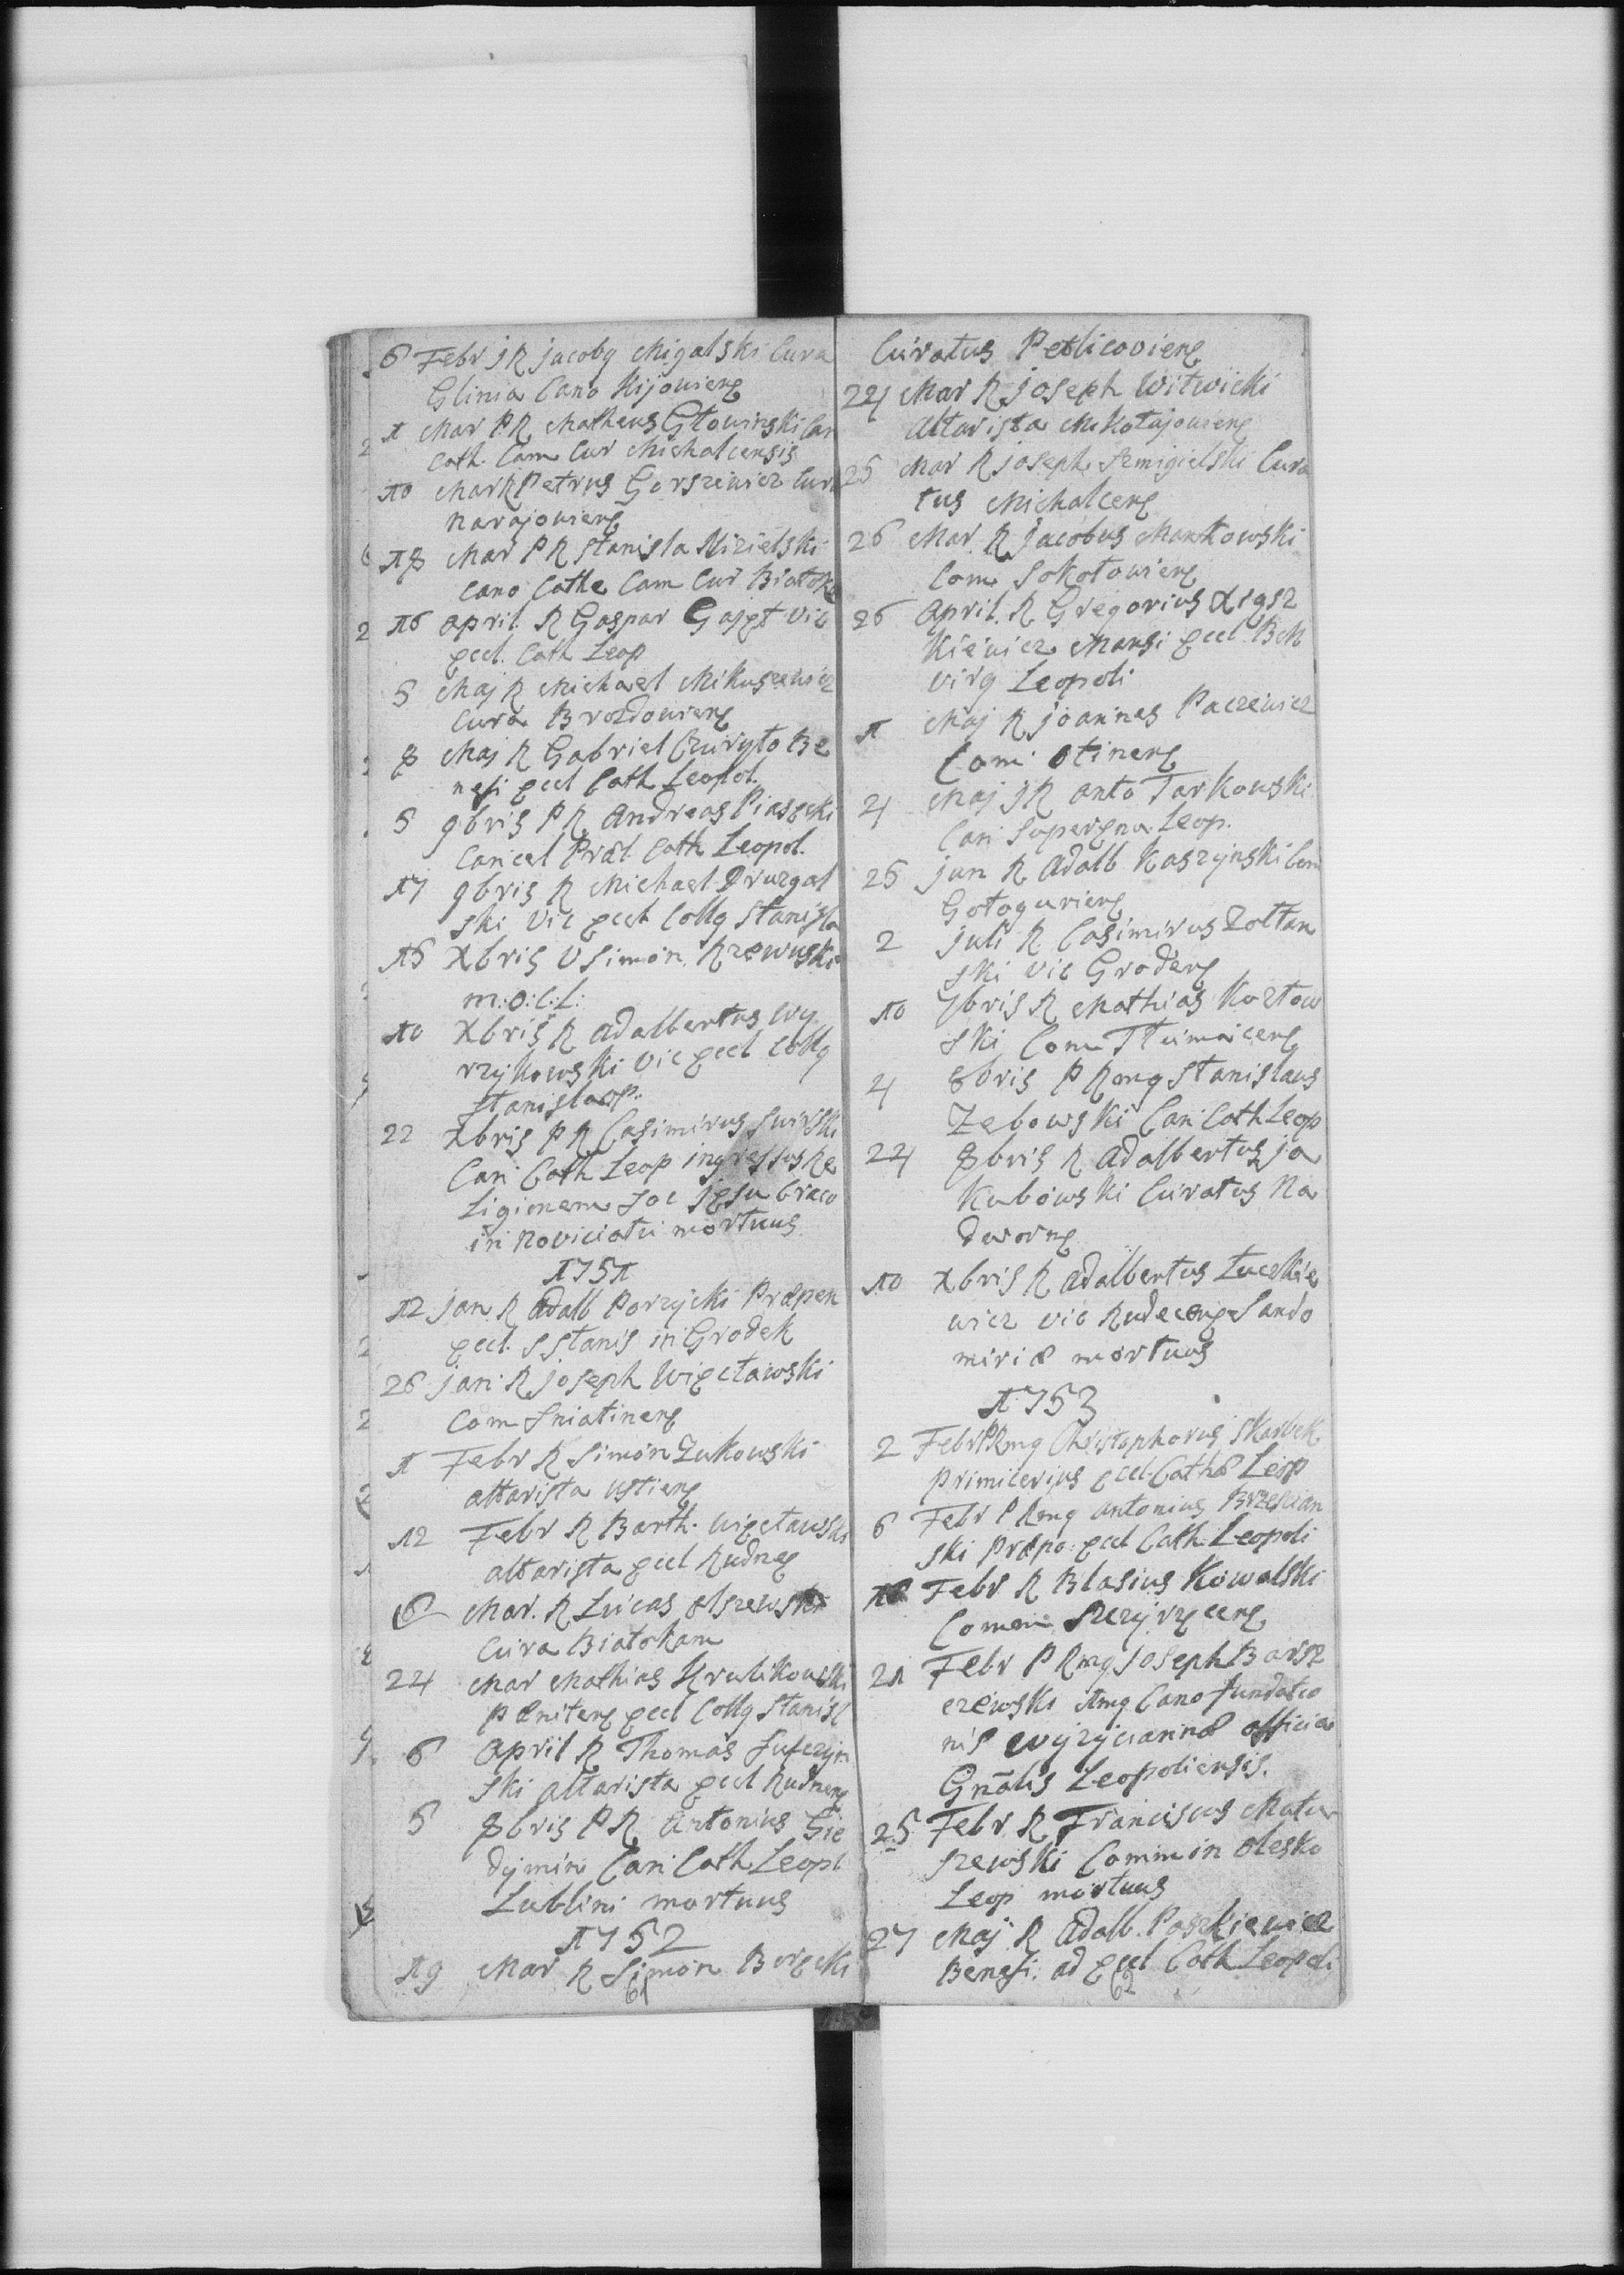 6 Febr JR Jacobq Migalski Cura
Glinia Cano Kijowienẽ
1 Mar PR Matheus Głowinski Can
Cath. Cam Cur Michalcensis
10 Mar R Petrus Gorszewicz Cura
Narajowienẽ
18 Mar PR Stanisla Nizielski
Cano Cathe Cam Cur Białoka
16 April R Gaspar Gajzt Vic
Eccl. Cath Leop
5 Maj R Michael Mikuszewicz
Cura Brozdowienẽ
8 Maj R Gabriel Be
nefi Eccl Cath Leopol.
5 9bris PR Andreas Piasecki
Cancel Præl. Cath Leopol.
17 9bris R Michael Druzgal
ski Vic Eccl Collg Stanisla
15 Xbris V Simon Rzewuski
m:o:C:L:
10 Xbris R Adalbertus Wy
rzykowski Vic Eccl Collg
Stanislaop:
22 Xbris PR Casimirus Swirski
Can Cath Leop ingressus Re
ligionem Soc Jesu Craco
in Noviciatu mortuus
1751
12 Jan R Adalb Porzycki Præpen
Eccl. S Stanis in Grodek
26 Jan R Joseph Więcławski
Com Sniatinenẽ
1 Febr R Simon Zukowski
altarista Ustienẽ
12 Febr R Barth. Więcławski
altarista Eccl Rudnẽ
6 Mar. R Lucas Olszewski
Cura Białokam
24 Mar Mathias Krulikowski
Pænitenẽ Eccl Collg Stanisl
6 April R Thomas Sufczyn
ski altarista Eccl Rudnenẽ
5 8bris PR Antonius Gie
dymin Can Cath Leopl
Lublini mortuus
1752
19 Mar R Simon Borecki
61
Curatus Petlicovienẽ
24 Mar R Joseph Witwicki
Altarista Mikołajowienẽ
25 Mar R Joseph Szmigielski Cura
tus Michalcenẽ
26 Mar R Jacobus Mankowski
Com Sokołowienẽ
26 April. R Gregorius Xięsz
kiewicz Mansi Eccl BM
Virg Leopoli
1 Maj R Joannes Paczewicz
Com Otinenẽ
4 Maj JR Anto Tarkowski
Can Supernu Leop.
25 Jun R Adalb Kaszynski Com
Gołogurienẽ
2 Juli R Casimirus Zołtan
ski Vic Grodenẽ
10 7bris R Mathias Kozłow
ski Com Tłumaicenẽ
4 8bris P Rmg Stanislaus
Zebowski Can Cath Leop
24 8bris R Adalbertus Ja
kubowski Curatus Na
dworne
10 Xbris R Adalbertus Łuczkie
wicz Vic Rudecenẽ Sando
miriæ mortuus
1753
2 Febr P Rmg Christophorus Skarbek
Primicerius Eccl. Cathæ Leop
6 Febr P Rmg Antonius Brzezian
ski Præpo: Eccl Cath Leopoli
18 Febr R Blasius Kowalski
Comen Szczyrzecenẽ
21 Febr P Rmg Joseph Barsz
czewski Amg Cano fundatio
nis Wyżycianæ officia
Gn̄alis Leopoliensis.
25 Febr R Franciscus Matu
szewski Comm in Olesko
Leop mortuus
27 Maj R Adalb. Paszkiewicz
Benefi: ad Eccl Cath Leopoli
62